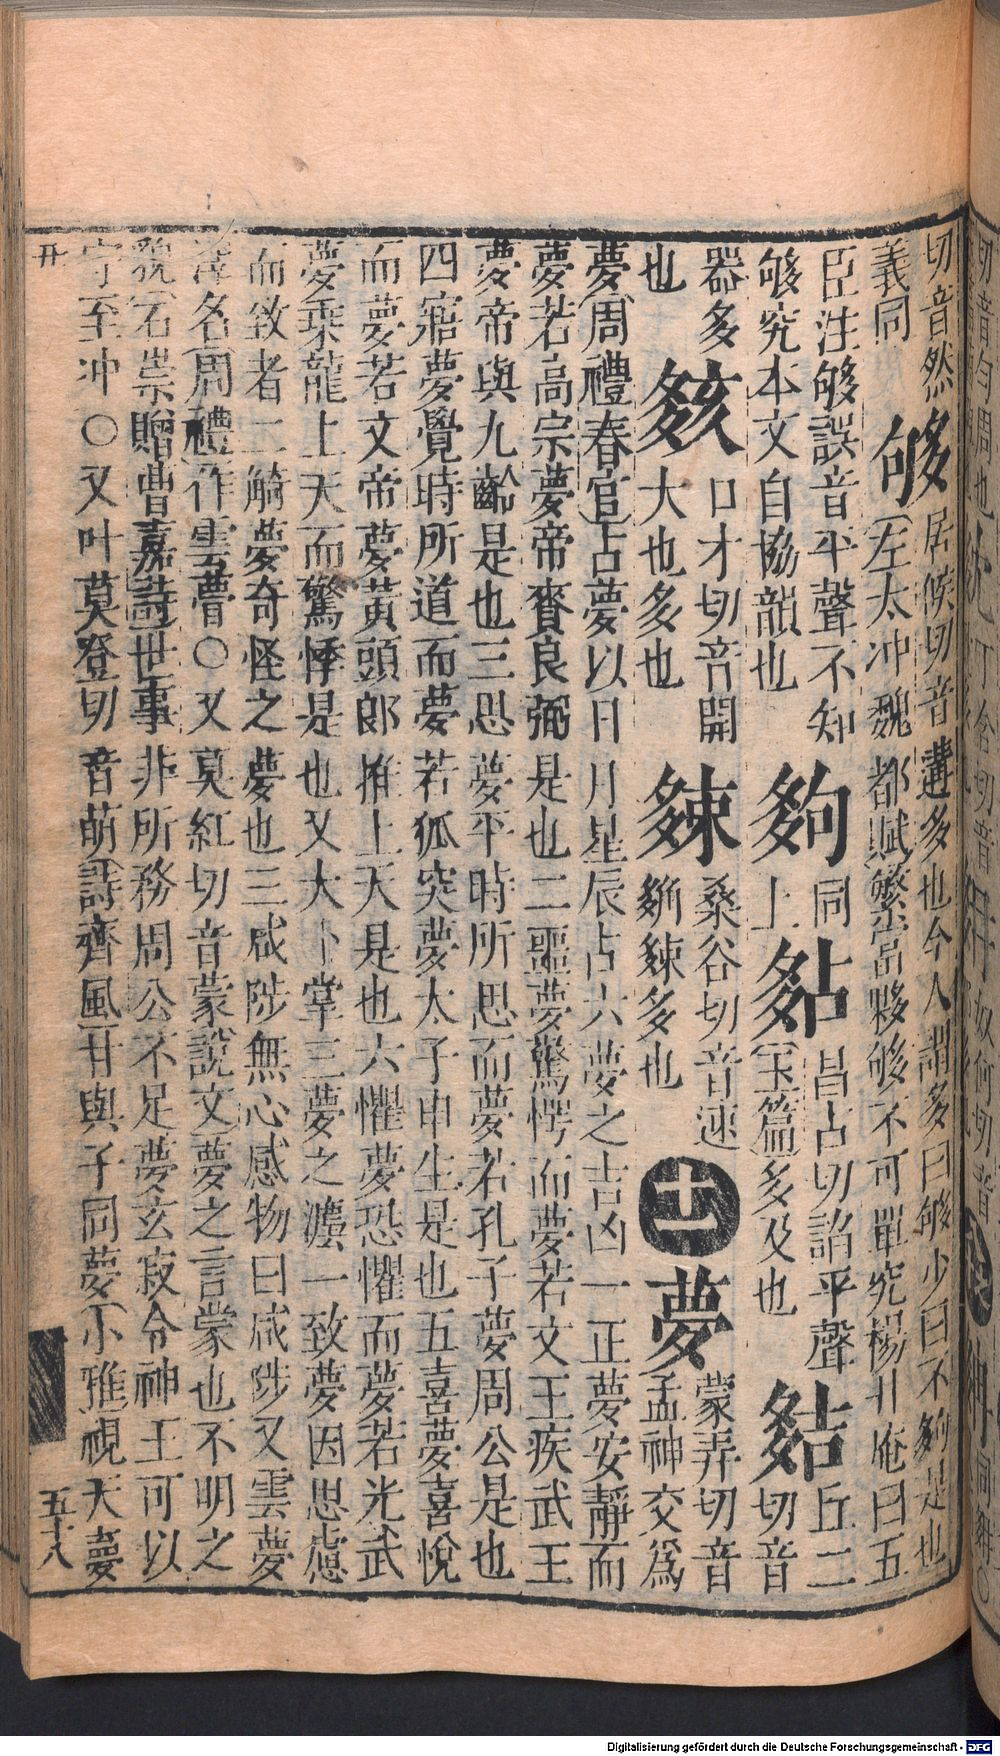 切音然
義同
够居候切音遘多也今人謂多曰够少曰不夠是也
(左太冲魏都賦)繁富夥够不可單究楊升庵曰五
臣注够誤音平聲不知
够究本文自協韻也
夠同上
㚲昌占切諂平聲(玉篇)多及也
㚡丘二切音
器多
也
㚊口才切音開
大也多也
𡖿桑谷切音速
𡖿多也
十一
夢蒙弄切音
孟神交爲
夢(周禮春官)占夢以日月星辰占六夢之吉凶一正夢安靜而
夢若高宗夢帝賚良弼是也二噩夢驚愕而夢若文王疾武王
夢帝與九齡是也三思夢平時所思而夢若孔子夢周公是也
四寤夢覺時所道而夢若狐突夢太子申生是也五喜夢喜悅
而夢若文帝夢黃頭郎推上天是也六懼夢恐懼而夢若光武
夢乘龍上天而驚悸是也又大卜掌三夢之灋一致夢因思慮
而致者二觭夢奇怪之夢也三咸陟無心感物曰咸陟又雲夢
澤名(周禮)作雲瞢〇又莫紅切音蒙說文夢之言蒙也不明之
貌(石崇贈曹嘉詩)世事非所務周公不足夢玄寂令神王可以
守至冲〇又叶莫登切音萌(詩齊風)甘與子同夢(小雅)視天夢
五十八
Digitalisierung gefördert durch die Deutsche Forschungsgemeinschaft - DFG